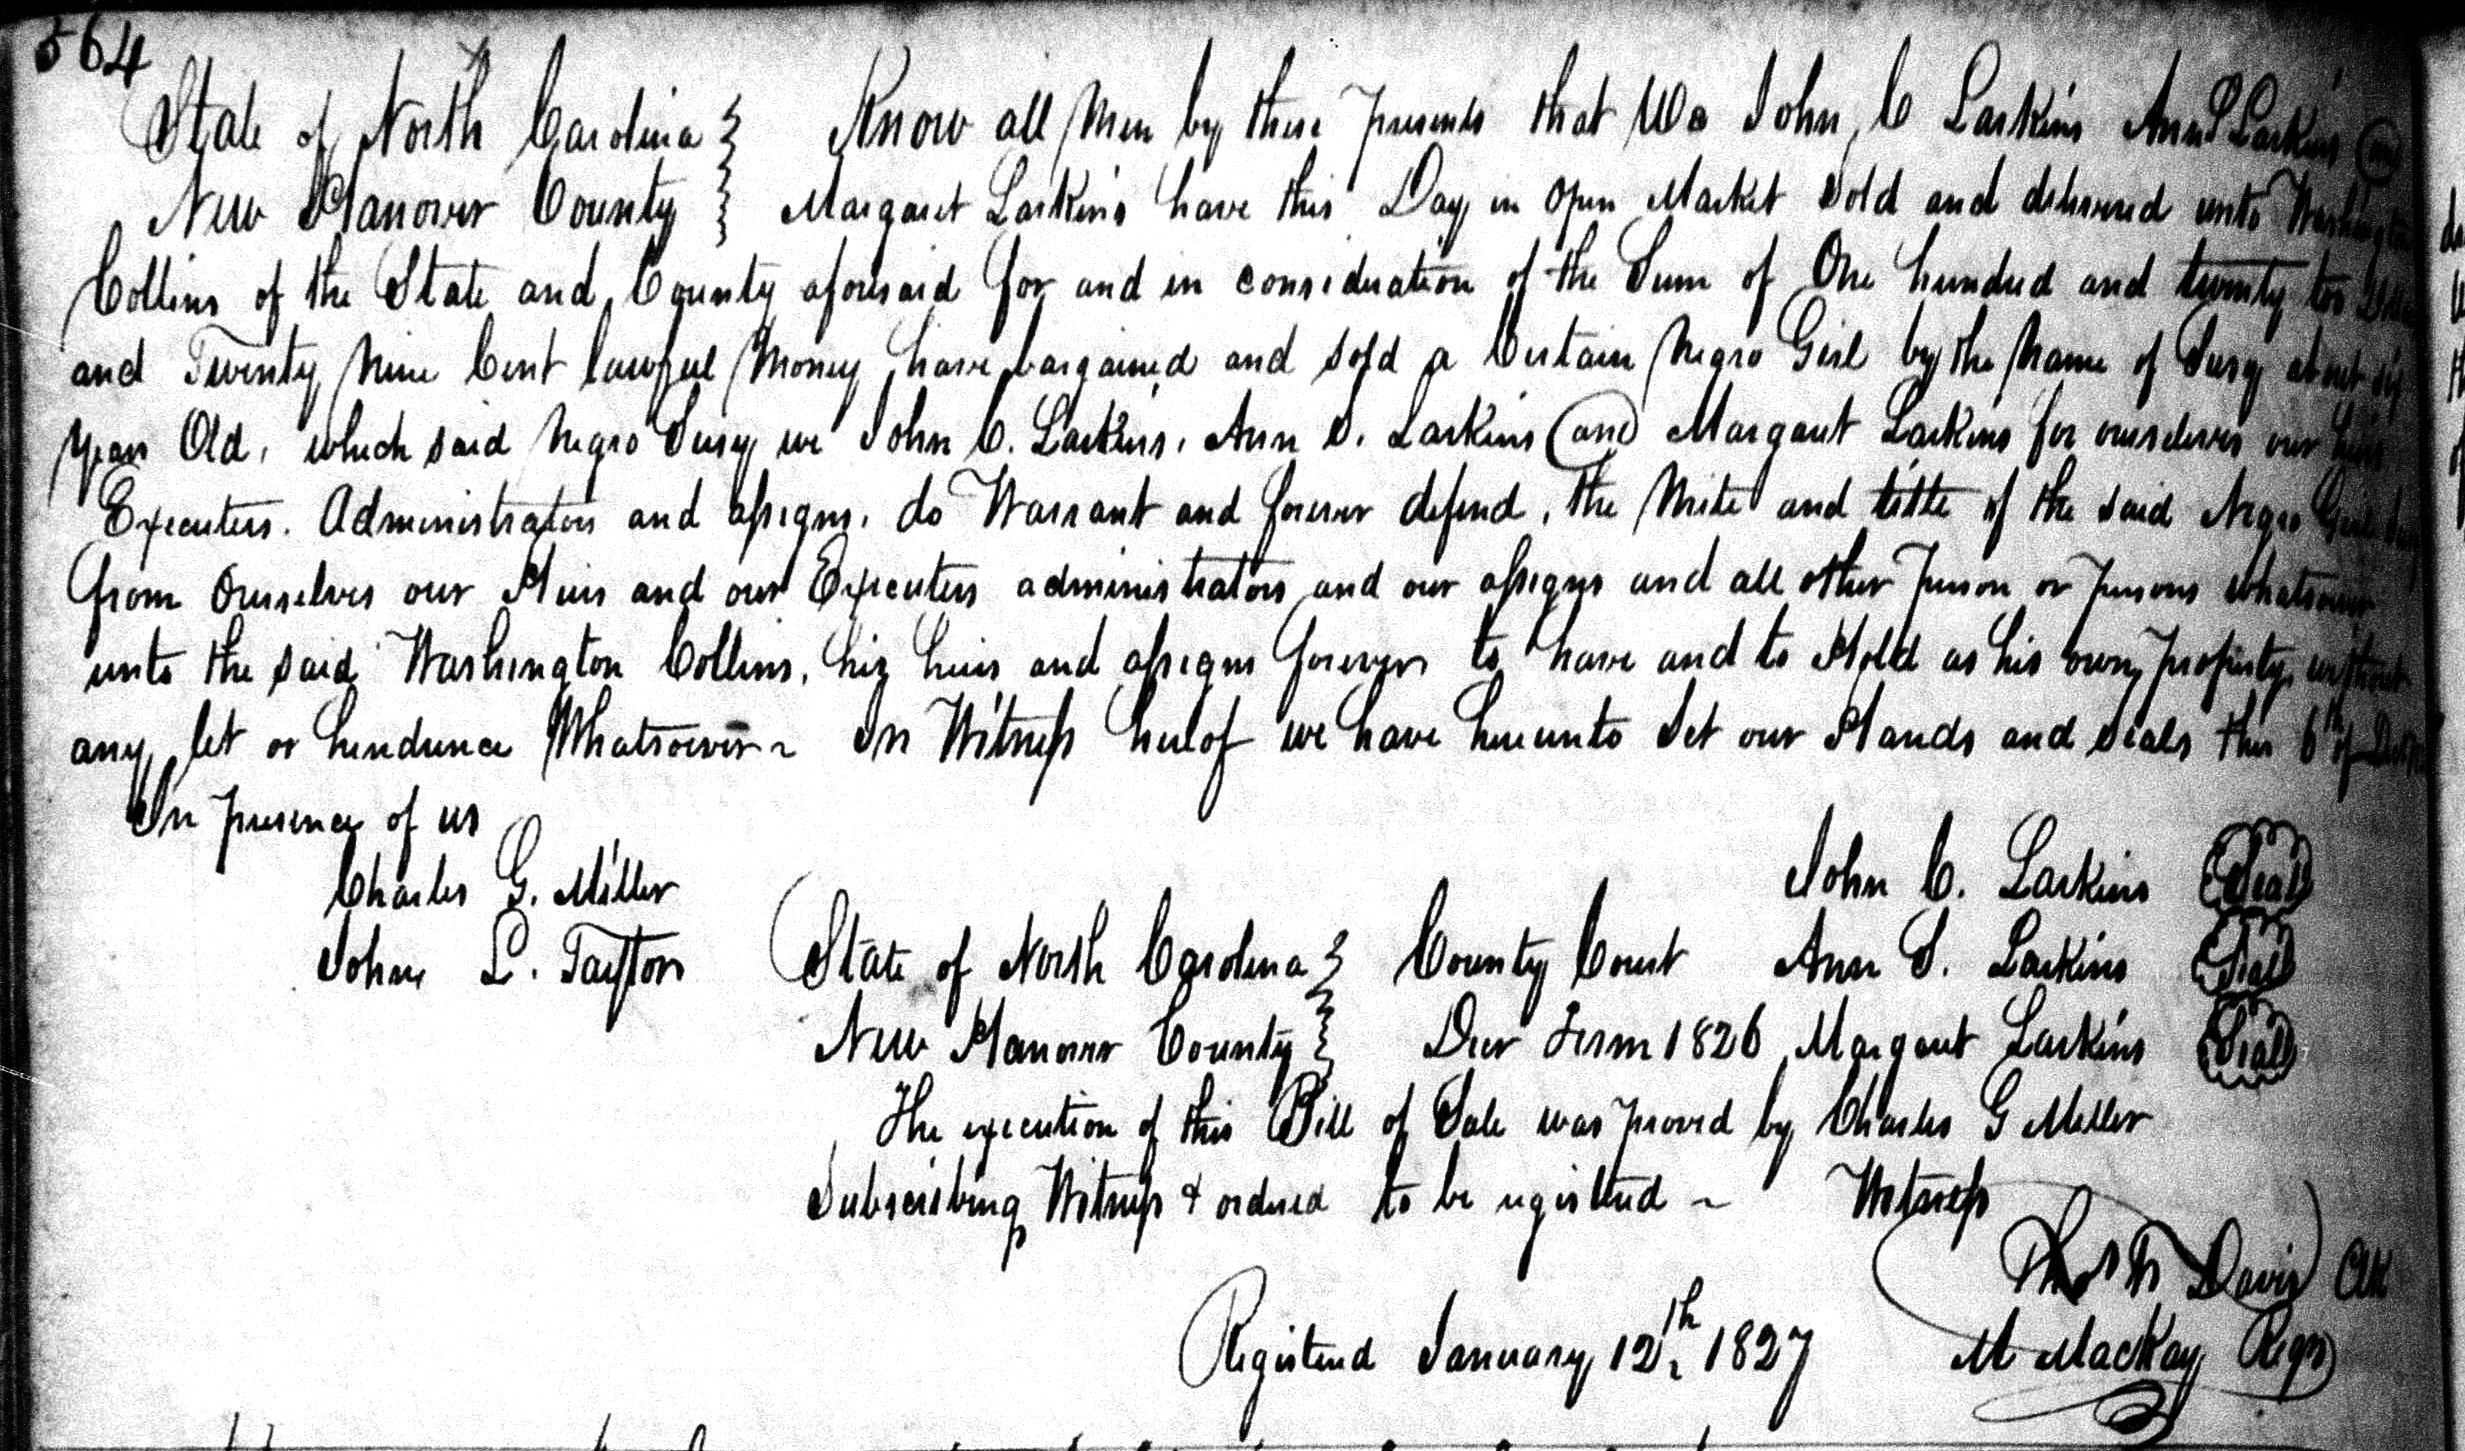 564
State of North Carolina Know all Men by these presents that We John C Larkins Ann S Larkins and
New Hanover County Margaret Larkins have this Day in Open Market Sold and delivered unto Washington
Collins of the State and County aforesaid for and in consideration of the Sum of One hundred and twenty too
and Twenty Nine Cent lawful Money have bargained and sold a Certain Negro Girl by the Name of Susy about six
years Old, which said Negro Susy we John C. Larkins, Ann S. Larkins and Margaret Larkins for ourselves our heirs
Executers. Administrators and assigns, do Warrant and forever defend, the and title of the said Negro Girl
from Ourselves our Heirs and our Executers administrators and our assigns and all other person or persons whatsoever
unto the said Washington Collins, his heirs and assigns forever to have and to Hold as his own property without
any let or hendrence Whatsoever ~ In Witness hereof we have hereunto Set our Hands and Seals this 6th of
In presence of us
Charles G. Miller John C. Larkins Seal
John L. State of North Carolina County Court Ann S. Larkins Seal
New Hanover County Decr Term 1826 Margaret Larkins Seal
The execution of this Bill of Sale was proved by Charles G Miller
Subscribing Witness & ordered to be registered ~ Witness
Thos F Davis Clk
Registered January 12th 1827 M MacKay Regr